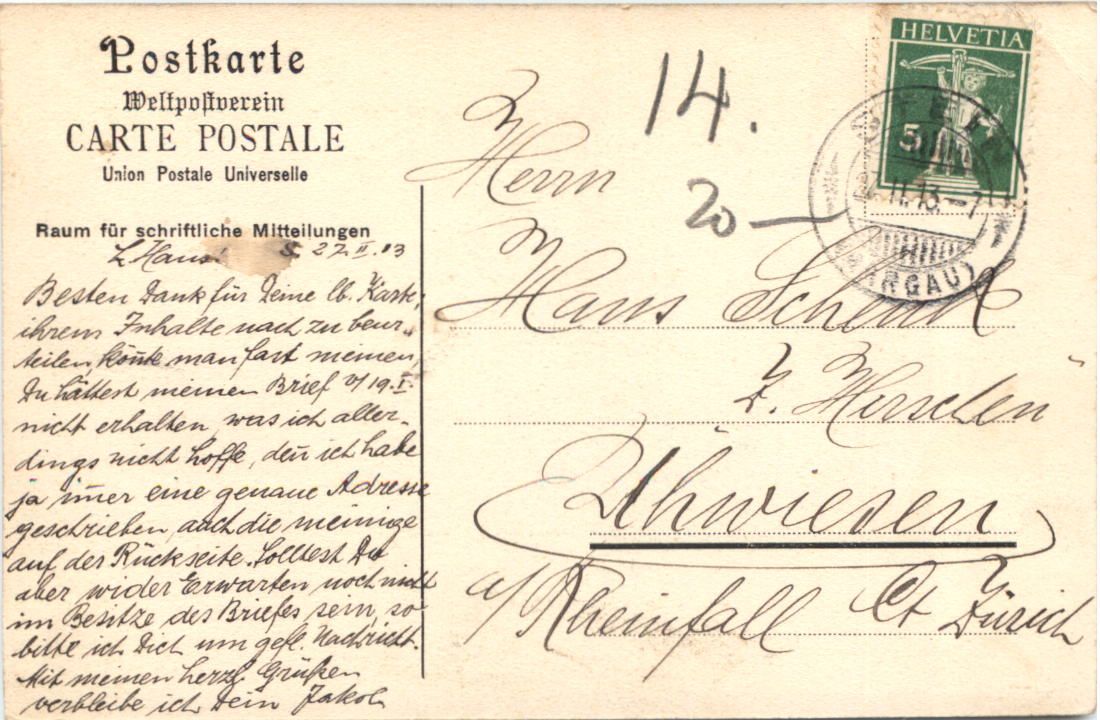 Postkarte
Weltpostverein
CARTE POSTALE
Union Postale Universelle
Raum für schriftliche Mitteilungen
L. Hans 27.II.13
Besten Dank für Deine lb. Karte,
ihrem Inhalte nach zu beur-
teilen, kön̄te man fast meinen,
Du hättest meinen Brief v/19.I.
nicht erhalten, was ich aller-
dings nicht hoffe, deñ ich habe
ja im̄er eine genaue Adresse
geschrieben, auch die meinige
auf der Rückseite. Solltest Du
aber wider Erwarten noch nicht
im Besitze des Briefes sein, so
bitte ich Dich um gefl. Nachricht.
Mit meinen herzl. Grüßen
verbleibe ich Dein Jakob
14.
20
HELVETIA
5
27.II.13.-7
(AARGAU)
Herrn
Hans Schenk
z. Hirschen
Uhwiesen
a/Rheinfall Ct Zürich